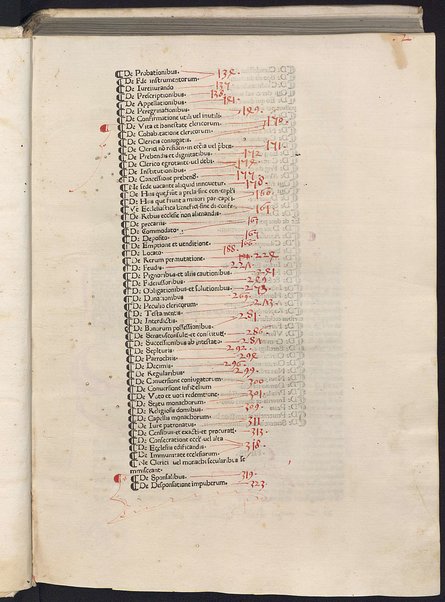 De Probationibus. 138
De Fide instrumentorum.
De Iureiurando 137
De Prescriptionibus. 138
De Appellationibus. 141
De Peregrinationibus. 149
De Confirmatione utili uel inutili.
De Vita et honestate clericorum. 170
De Cohabitatione clericorum.
De Clericis coniugatis.
De Clericis nõ residen. in ecc̃a uel p̃ben. 171
De Prebendis et dignitatibus. 172
De Clerico egrotante uel debi. 174
De Institutionibus. 177
De Concessione prebend. 178
Ne sede uacante aliquid innouetur.
De Hiis que fiunt a prela. sine con. capi.
De Hiis que fiunt a maiori par. capi.
Vt Ecclesiastica beneficia sine di. confe. 161
De Rebus ecclesie non alienandis.
De precariis. 163
De Commodato.
De Deposito. 167
De Emptione et uenditione. 166
De Locato. 188
De Rerum permutatione.
De Feudis.
De Pignoribus et aliis cautionibus.
De Fideiussoribus.
De Obligationibus et solutionibus.
De Donationibus
De Peculio clericorum.
De Testamentis.
De Interdictis. 281
De Bonorum possessionibus.
De Senatusconsulto et constitut. 286
De Successionibus ab intestato. 287
De Sepultura. 292
De Parrochiis. 294
De Decimis. 296
De Regularibus. 299
De Conuersione coniugatorum. 300
De Conuersione infidelium
De Voto et uoti redemtione. 301
De Statu monachorum.
De Religiosis domibus. 309
De Capellis monachorum.
De Iure patronatus. 311
De Censibus et exacti. et procurati. 313
De Consecratione eccl̃. uel alta
De Ecclesiis edificandis. 318
De Immunitate ecclesiarum.
Ne Clerici uel monachi secularibus se
immisceant.
De Sponsalibus. 319
De Desponsatione impuberum. 323